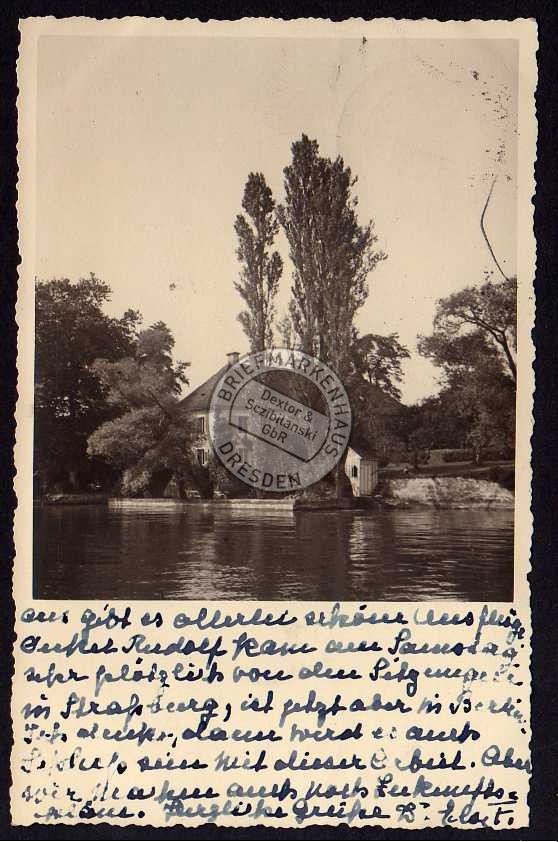 BRIEFMARKENHAUS
Dextor &
Sczibilanski
GbR
DRESDEN
aus gibt es allerlei schöne Ausflüge
Onkel Rudolf kam am Samstag
sehr plötzlich von den Sitzungen
in Straßburg, ist jetzt aber in Berlin.
Ich denke, dann wird es auch
Schluß sein mit dieser Arbeit. Aber
wir machen auch noch Zukunfts=
pläne. Herzliche Grüße